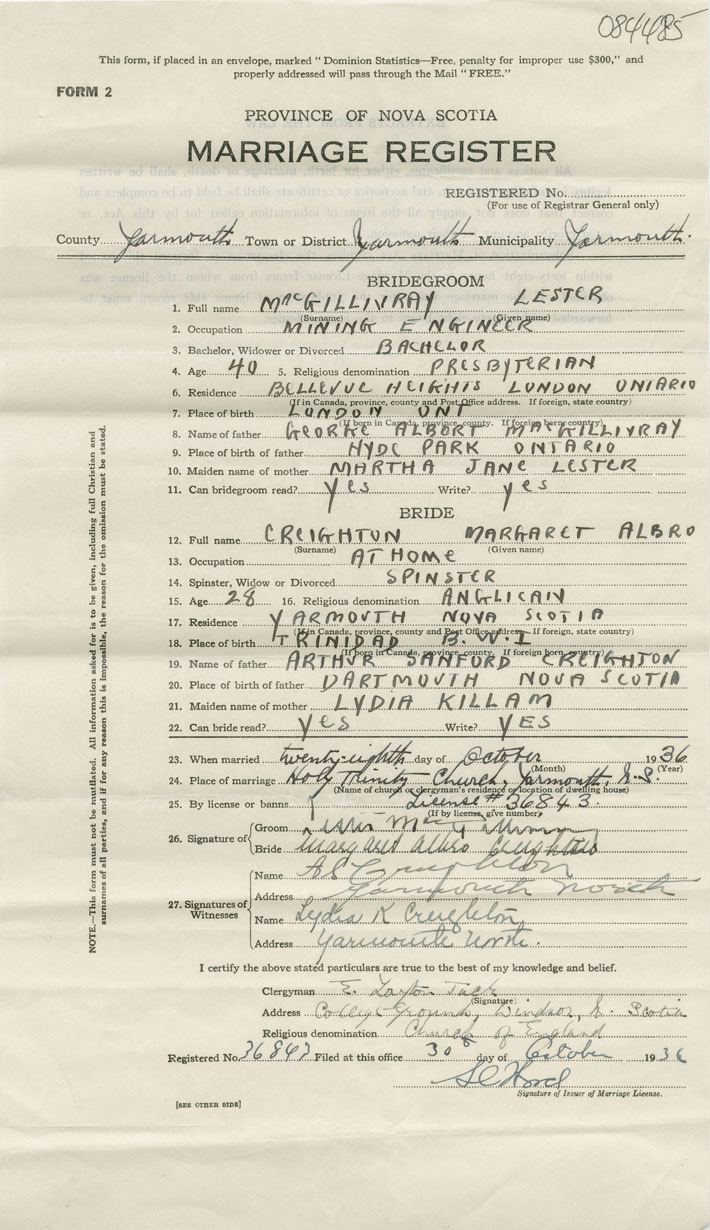 084485
This form, if placed in an envelope, marked "Dominion Statistics—Free, penalty for improper use $300," and
properly addressed will pass through the Mail "FREE."
FORM 2
PROVINCE OF NOVA SCOTIA
MARRIAGE REGISTER
REGISTERED No.
(For use of Registrar General only)
County Yarmouth Town or District Yarmouth Municipality Yarmouth.
BRIDEGROOM
1. Full name MACGILLIVRAY LESTER
(Surname) (Given name)
2. Occupation MINING ENGINEER
3. Bachelor, Widower or Divorced BACHELOR
4. Age 40 5. Religious denomination PRESBYTERIAN
6. Residence BELLEVUE HEIGHTS LONDON ONTARIO
(If in Canada, province, county and Post Office address. If foreign, state country)
7. Place of birth LONDON ONT
(If born in Canada, province, county. If foreign born, country)
8. Name of father GEORGE ALBERT MACGILLIVRAY
9. Place of birth of father HYDE PARK ONTARIO
10. Maiden name of mother MARTHA JANE LESTER
11. Can bridegroom read? Yes Write? yes
BRIDE
12. Full name CREIGHTON MARGARET ALBRO
(Surname) (Given name)
13. Occupation AT HOME
14. Spinster, Widow or Divorced SPINSTER
15. Age 28 16. Religious denomination ANGLICAN
17. Residence YARMOUTH NOVA SCOTIA
(If in Canada, province, county and Post Office address. If foreign, state country)
18. Place of birth TRINIDAD B.W.I
(If born in Canada, province, county. If foreign born, country)
19. Name of father ARTHUR SANFORD CREIGHTON
20. Place of birth of father DARTMOUTH NOVA SCOTIA
21. Maiden name of mother LYDIA KILLAM
22. Can bride read? YES Write? YES
23. When married twenty-eighth day of October 1936
(Month) (Year)
24. Place of marriage Holy Trinity Church, Yarmouth, N.S.
(Name of church or clergyman's residence or location of dwelling house)
25. By license or banns License # 36843.
(If by license, give number)
26. Signature of
Groom Lester MacGillivray
Bride Margaret Albro Creighton
27. Signatures of Witnesses
Name A S Creighton
Address Yarmouth North
Name Lydia K Creighton
Address Yarmouth North.
I certify the above stated particulars are true to the best of my knowledge and belief.
Clergyman E. Layton Tuck
(Signature)
Address College Grounds, Windsor, N. Scotia
Religious denomination Church of England
Registered No. 36843 Filed at this office 30 day of October 1936
Signature of Issuer of Marriage License.
[SEE OTHER SIDE]
NOTE.—This form must not be mutilated. All information asked for is to be given, including full Christian and
surnames of all parties, and if for any reason this is impossible, the reason for the omission must be stated.